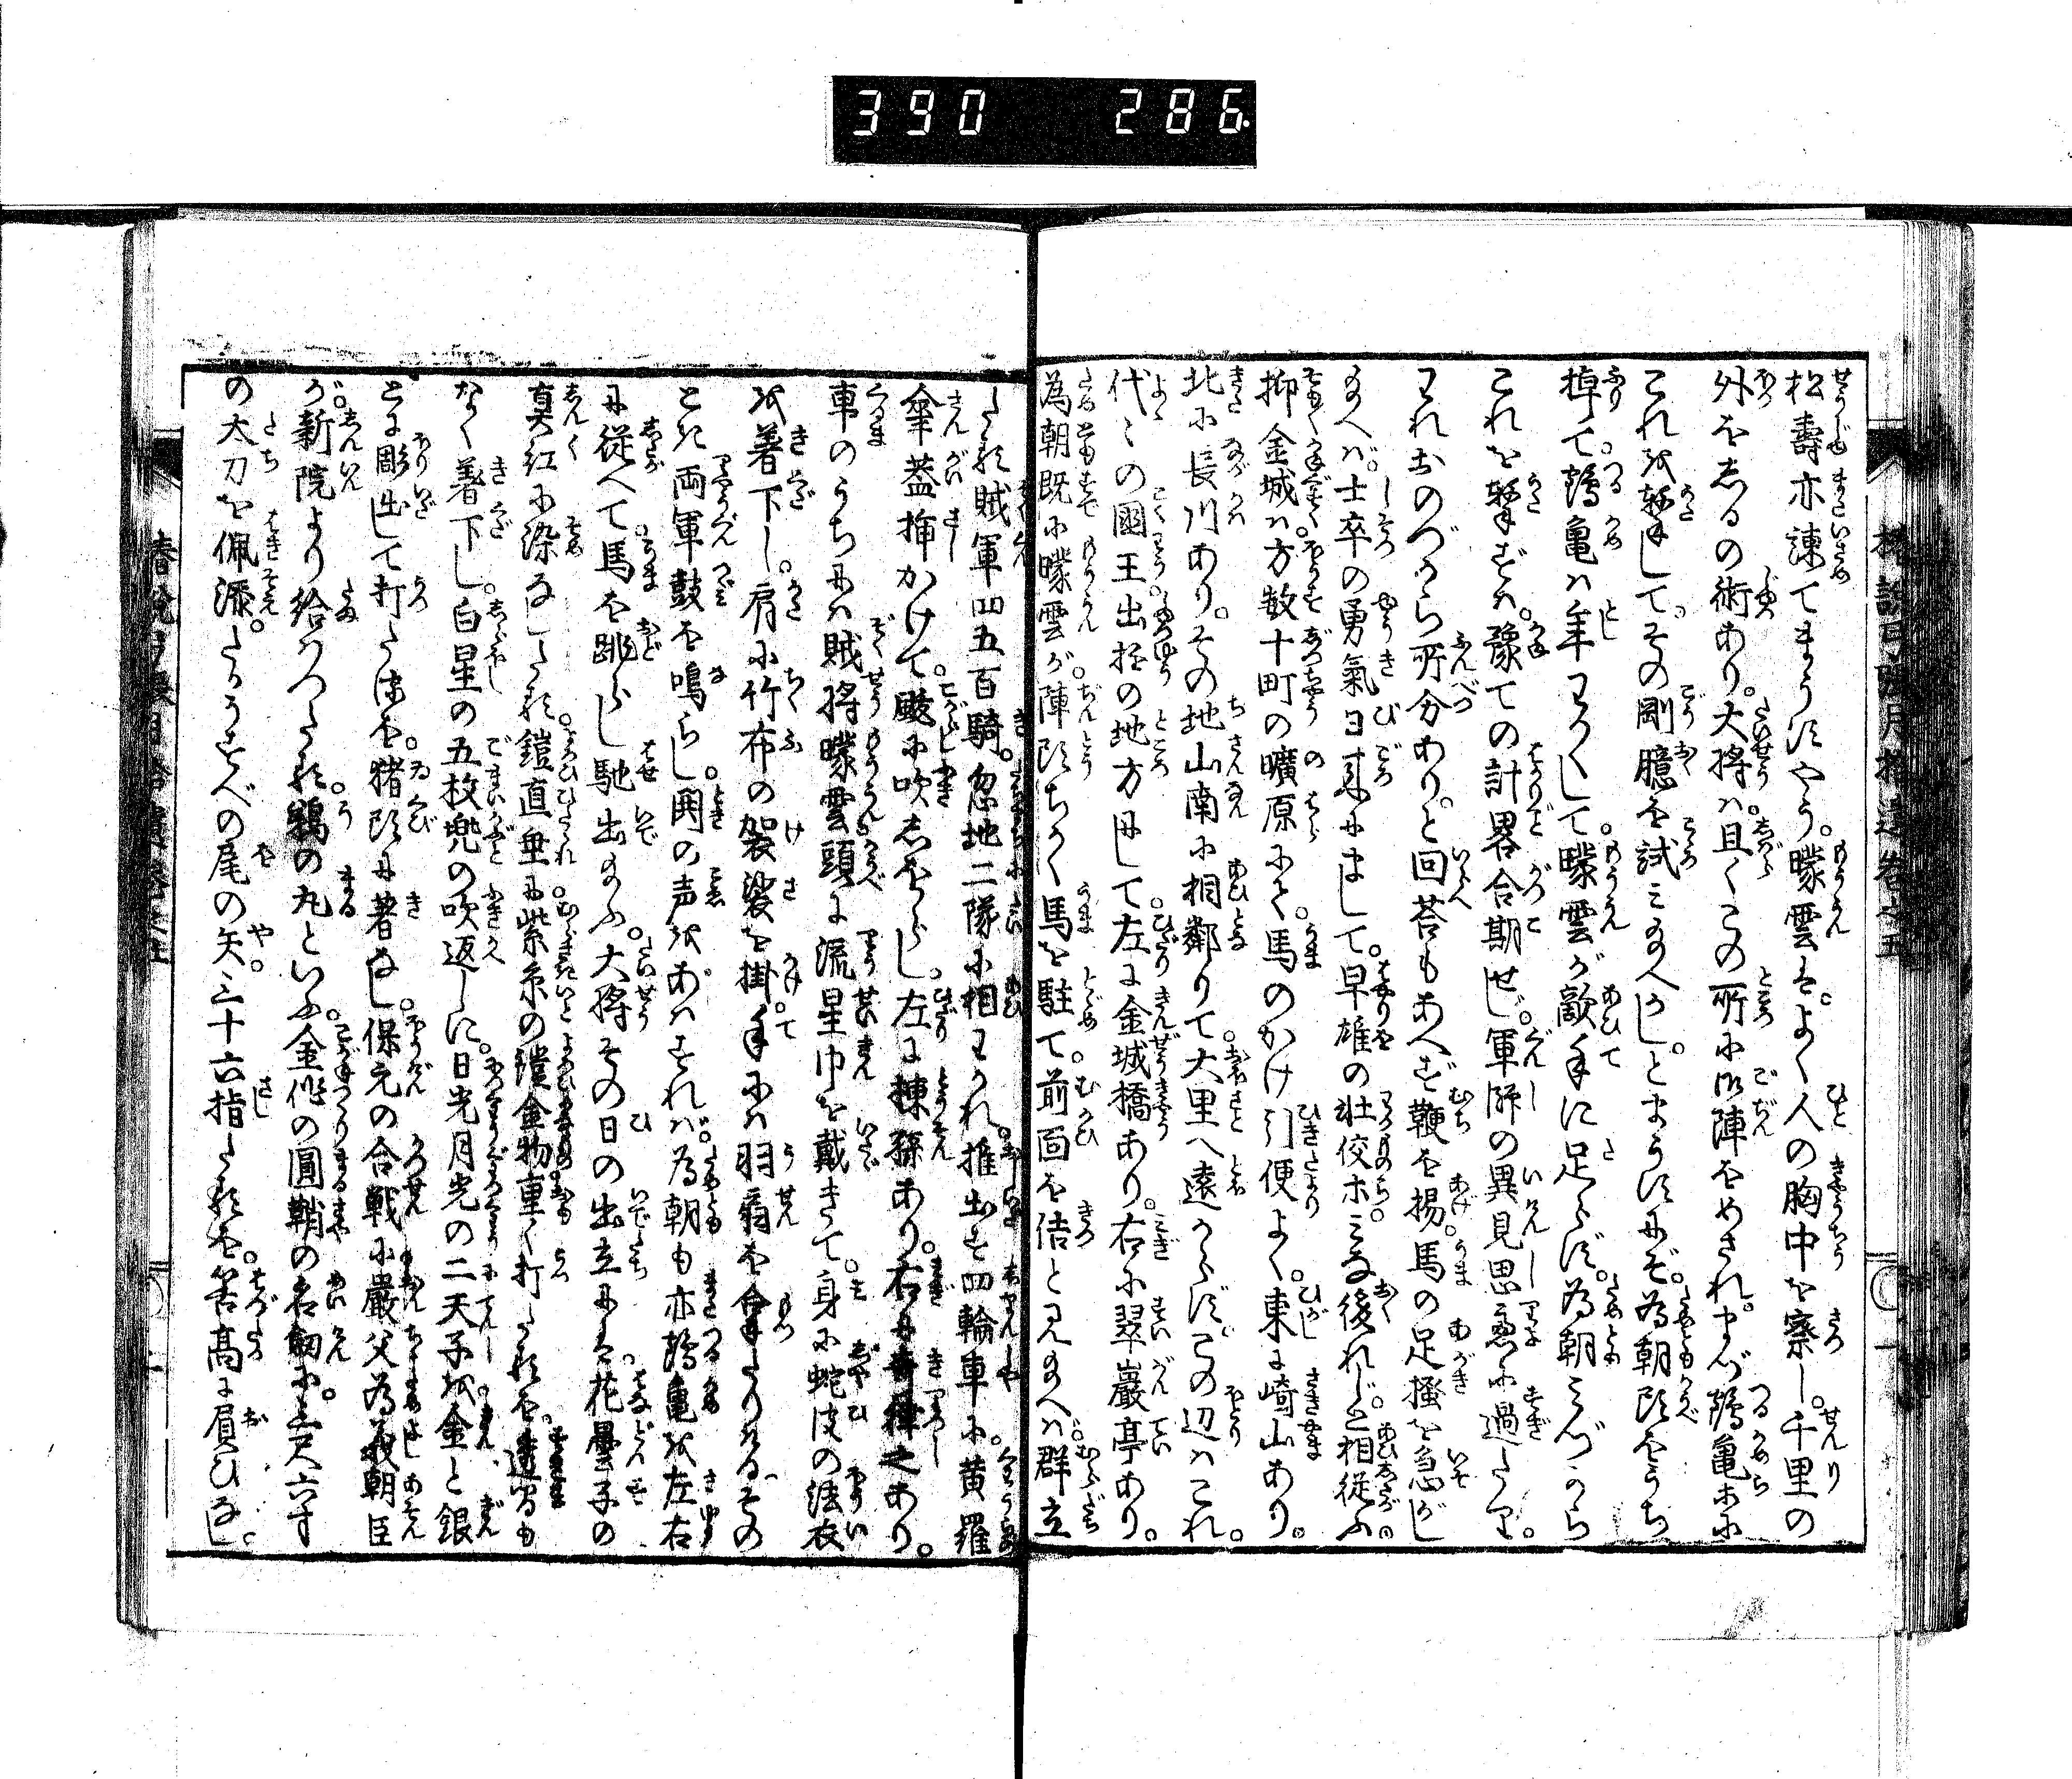 390 286
松壽亦諌てまうすやう。曚雲は。よく人の胸中を察し。千里の
外をしるの術あり。大将は。且くこの所に御陣をめされ。まづ鶴亀亦に
これを撃して。その剛臆を試み給へかし。とまうすにぞ。為朝頭をうち
掉て。鶴亀は年わかくして。曚雲が敵手に足らず。為朝みづから
これを撃ずは。豫ての計畧合期せじ。軍師の異見思慮に過たり。
われおのづから所分あり。と回荅もあへず鞭を揚。馬の足掻を急がし
給へば。士卒の勇氣日来にまして。早雄の壮佼ホ。みな後れじと相従ふ。
抑金城は。方数十町の曠原にて。馬のかけ引便よく。東に崎山あり。
北に長川あり。その地山南に相鄰りて。大里へ遠からず。この辺はこれ。
代〻の國王。出遊の地方にして。左に金城橋あり。右に翠巖亭あり。
為朝既に曚雲が。陣頭ちかく馬を駐て。前面を佶と見給へは。群立
たる賊軍四五百騎。忽地二隊に相わかれ。推出す四輪車に。黄羅
傘葢挿かけて。颷に吹しをらし。左に棟孫あり。右に
車のうちには賊将曚雲頭に流星巾を戴きて。身に蛇皮の法衣
を著下し。肩に竹布の袈裟を掛。手には羽扇を拿たりける。その
とき両軍鼓を鳴らし。鬨の声をあはすれば。為朝も亦鶴亀を左右
に従へて。馬を跳らし馳出給ふ。大将その日の出立には。花曇子の
真紅に染なしたる。鎧直垂に。紫糸の鎧金物。重く打たるを。透間も
なく著下し。白星の五枚兜の吹返しに。日光月光の二天子を。金と銀
とに彫出して打たるを。猪頸に著なし。保元の合戦に嚴父為義朝臣
が。新院より給はつたる。鵜の丸といふ。金作の圓鞘の名劔に。三尺六寸
の太刀を佩添。たかうすべの尾の矢。三十六指たるを。筈高に負ひなし。